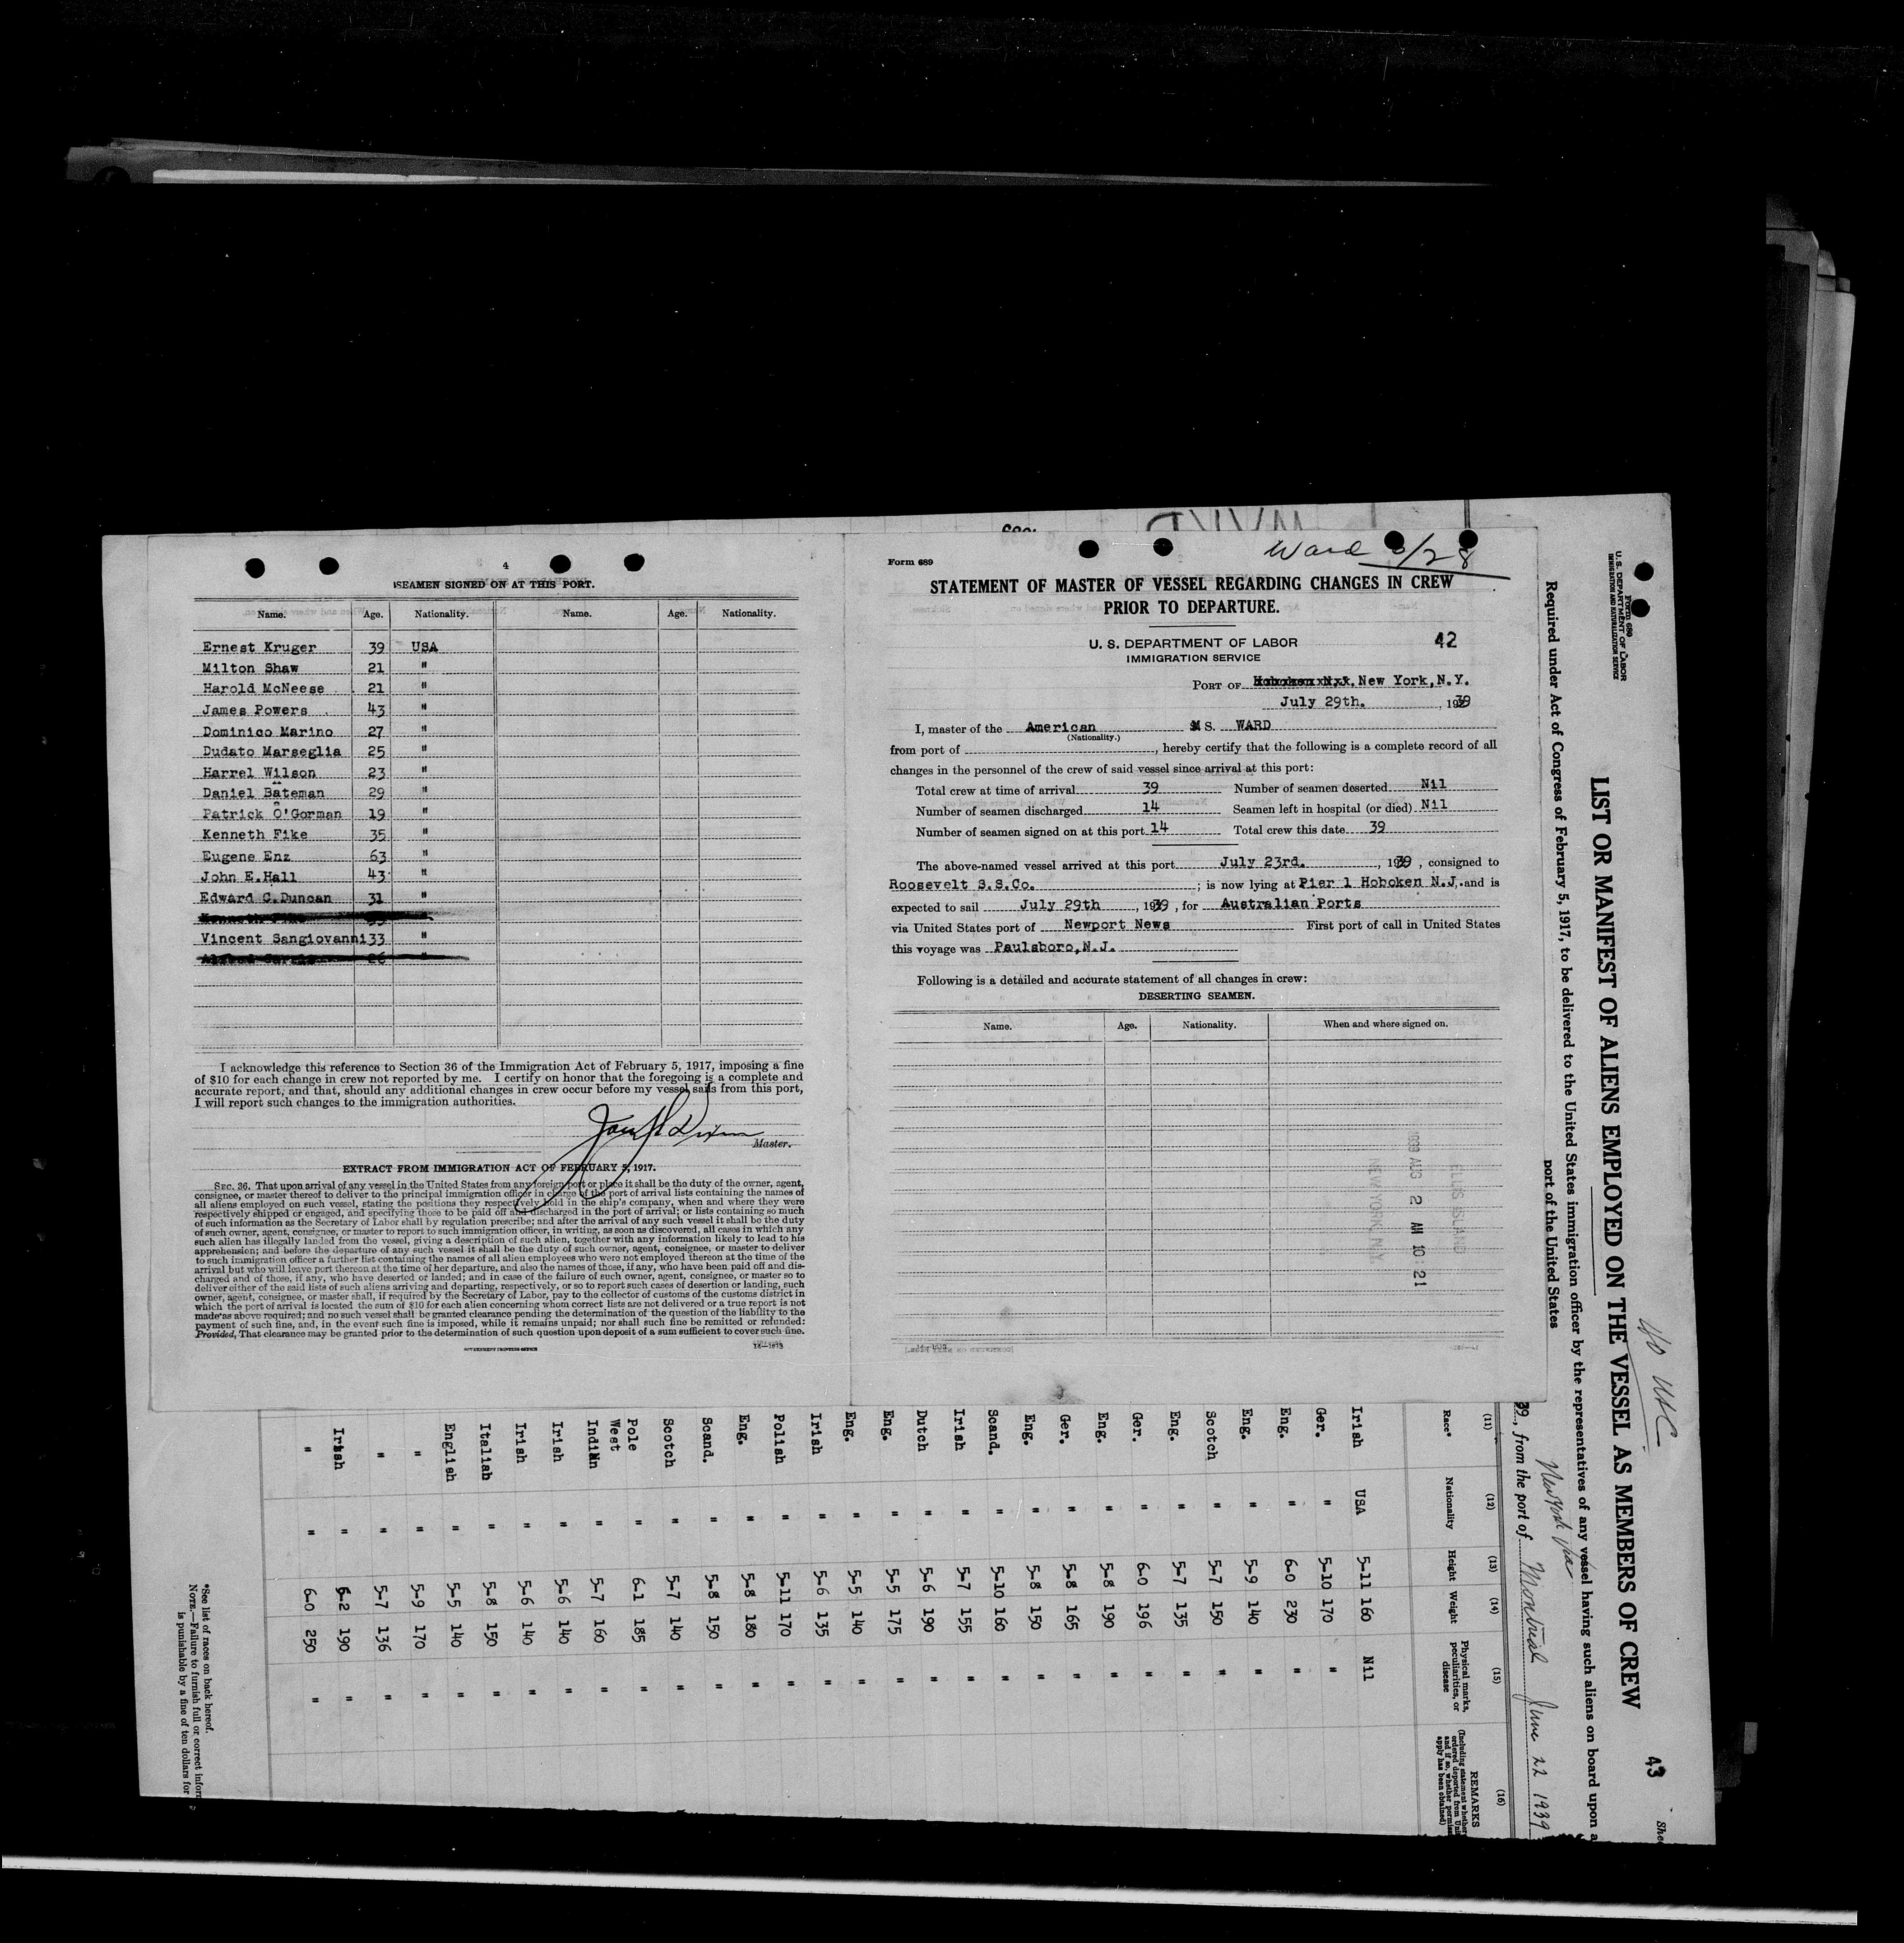 4
SEAMEN SIGNED ON AT THIS PORT.
Name. Age. Nationality. Name. Age. Nationality.
Ernest Kruger 39 USA
Milton Shaw 21 "
Harold McNeese 21 "
James Powers 43 "
Dominico Marino 27 "
Dudato Marseglia 25 "
Harrel Wilson 23 "
Daniel Bateman 29 "
Patrick O'Gorman 19 "
Kenneth Fike 35 "
Eugene Enz 63 "
John E.Hall 43 "
Edward C.Duncan 31 "
Kenneth Fike 35 "
Vincent Sangiovanni 33 "
26 "
I acknowledge this reference to Section 36 of the Immigration Act of February 5, 1917, imposing a fine
of $10 for each change in crew not reported by me. I certify on honor that the foregoing is a complete and
accurate report, and that, should any additional changes in crew occur before my vessel sails from this port,
I will report such changes to the immigration authorities.
Master.
EXTRACT FROM IMMIGRATION ACT OF FEBRUARY 5, 1917.
SEC. 36. That upon arrival of any vessel in the United States from any foreign port or place it shall be the duty of the owner, agent,
consignee, or master thereof to deliver to the principal immigration officer in charge of the port of arrival lists containing the names of
all aliens employed on such vessel, stating the positions they respectively hold in the ship's company, when and where they were
respectively shipped or engaged, and specifying those to be paid off and discharged in the port of arrival; or lists containing so much
of such information as the Secretary of Labor shall by regulation prescribe; and after the arrival of any such vessel it shall be the duty
of such owner, agent, consignee, or master to report to such immigration officer, in writing, as soon as discovered, all cases in which any
such alien has illegally landed from the vessel, giving a description of such alien, together with any information likely to lead to his
apprehension; and before the departure of any such vessel it shall be the duty of such owner, agent, consignee, or master to deliver
to such immigration officer a further list containing the names of all alien employees who were not employed thereon at the time of the
arrival but who will leave port thereon at the time of her departure, and also the names of those, if any, who have been paid off and dis-
charged and of those, if any, who have deserted or landed; and in case of the failure of such owner, agent, consignee, or master so to
deliver either of the said lists of such aliens arriving and departing, respectively, or so to report such cases of desertion or landing, such
owner, agent, consignee, or master shall, if required by the Secretary of Labor, pay to the collector of customs of the customs district in
which the port of arrival is located the sum of $10 for each alien concerning whom correct lists are not delivered or a true report is not
made as above required; and no such vessel shall be granted clearance pending the determination of the question of the liability to the
payment of such fine, and, in the event such fine is imposed, while it remains unpaid; nor shall such fine be remitted or refunded:
Provided, That clearance may be granted prior to the determination of such question upon deposit of a sum sufficient to cover such fine.
GOVERNMENT PRINTING OFFICE
Form 689
Ward 3/28
STATEMENT OF MASTER OF VESSEL REGARDING CHANGES IN CREW
PRIOR TO DEPARTURE.
U. S. DEPARTMENT OF LABOR 42
IMMIGRATION SERVICE
PORT OF Hoboken N.J. New York,N.Y.
July 29th. , 1939
I, master of the American M S. WARD
(Nationality.)
from port of , hereby certify that the following is a complete record of all
changes in the personnel of the crew of said vessel since arrival at this port:
Total crew at time of arrival 39 Number of seamen deserted Nil
Number of seamen discharged 14 Seamen left in hospital (or died) Nil
Number of seamen signed on at this port 14 Total crew this date 39
The above-named vessel arrived at this port July 23rd. , 1939 , consigned to
Roosevelt S.S.Co. ; is now lying at Pier 1 Hoboken N.J. and is
expected to sail July 29th , 1939 , for Australian Ports
via United States port of Newport News First port of call in United States
this voyage was Paulsboro,N.J.
Following is a detailed and accurate statement of all changes in crew:
DESERTING SEAMEN.
Name. Age. Nationality. When and where signed on.
ELLIS ISLAND
1939 AUG 2 AM 10:21
NEW YORK N.Y.
Form 680
U. S. DEPARTMENT OF LABOR
IMMIGRATION AND NATURALIZATION SERVICE
LIST OR MANIFEST OF ALIENS EMPLOYED ON THE VESSEL AS MEMBERS OF CREW
43
Required under Act of Congress of February 5, 1917, to be delivered to the United States immigration officer by the representatives of any vessel having such aliens on board upon a
port of the United States
40 USC
New York
39, from the port of Montreal June 22 1939
(11) (12) (13) (14) (15) (16)
Race* Nationality Height Weight Physical marks, peculiarities, or disease REMARKS
Irish USA 5-11 160 Nil
Ger. " 5-10 170 "
Eng. " 6-0 230 "
Eng. " 5-9 140 "
Scotch " 5-7 150 "
Eng. " 5-7 135 "
Ger. " 6-0 196 "
Eng. " 5-8 190 "
Ger. " 5-8 165 "
Eng. " 5-8 150 "
Scand. " 5-10 160 "
Irish " 5-7 155 "
Dutch " 5-6 190 "
Eng. " 5-5 175 "
Eng. " 5-5 140 "
Irish " 5-6 135 "
Polish " 5-11 170 "
Eng. " 5-8 180 "
Scand. " 5-8 150 "
Scotch " 5-7 140 "
Pole " 6-1 185 "
West Indian " 5-7 160 "
Irish " 5-6 140 "
Irish " 5-6 140 "
Italian " 5-8 150 "
English " 5-5 140 "
" " 5-9 170 "
" " 5-7 136 "
Irish " 6-2 190 "
" " 6-0 250 "
*See list of races on back hereof.
NOTE.—Failure to furnish full or correct inform
is punishable by a fine of ten dollars for